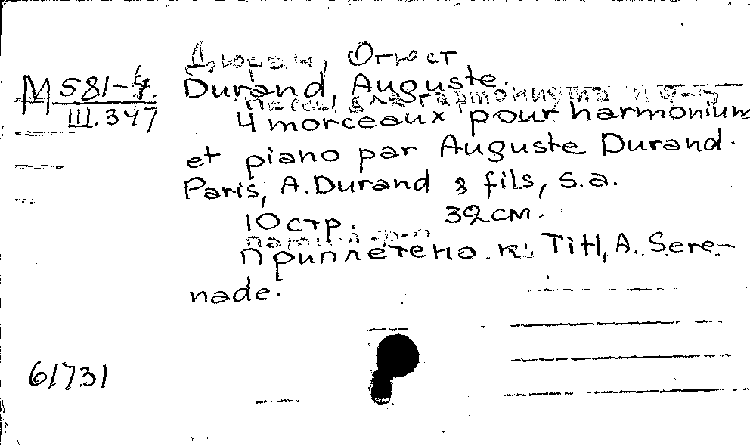 Дюран, Огюст
М 581-4.
III.347
Durand, Auguste.
4 morceaux pour harmonium
et piano par Auguste Durand.
Paris, A. Durand & fils, s.a.
10 стр. 32 см.
Приплетено к: Titl, A. Sere-
nade.
61731